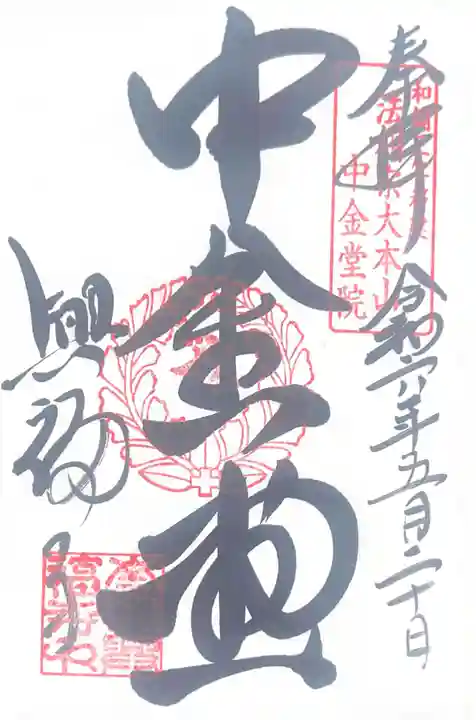 奉拝
令和六年五月二十日
法相宗大本山
中金堂院
中金堂
興福寺